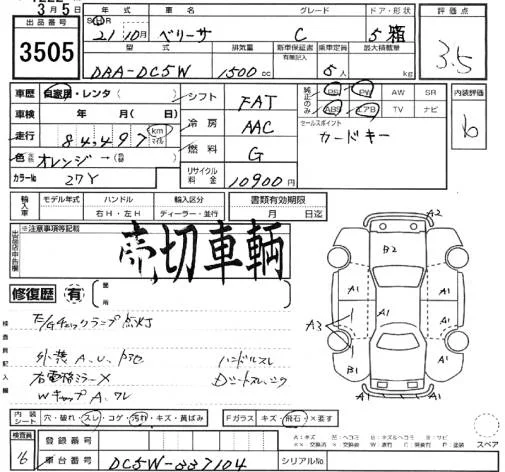 3月5日
出品番号 3505
年式 車名 グレード ドア・形状
S H 21年10月 ベリーサ C 5 箱
型式 排気量 新車保証書 乗車定員 最大積載量
有無記入
DBA-DC5W 1500cc 5人 kg
評価点
3.5
車歴 自家用・レンタ
車検 年 月(日)
走行 84,497 km マイル
色 オレンジ →
カラーNo 27Y
シフト FAT
冷房 AAC
燃料 G
リサイクル料金 10900円
純正のみ PS PW AW SR
ABS エアB TV ナビ
セールスポイント
カードキー
内装評価
輸入車 モデル年式 ハンドル 輸入区分 書類有効期限
右H・左H ディーラー・並行 月 日迄
※注意事項等記載
売切車輌
修復歴 有 箇所
検査員記入欄
F/Gチェックランプ点灯
外装 A、U、
右電格ミラーX
Wキャップ A、ワレ
ハンドルスレ
Dシート
A2
B2
A1 A1
A1
A3 A1
B1 B1
A1
内装シート 穴・破れ・スレ・コゲ・汚れ・キズ・黄ばみ
Fガラス キズ・飛石・×要す
A：キズ
スペア
検査員 16
登録番号
車台番号 DC5W-337104 シリアルNo